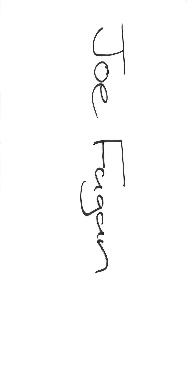 Joe Fagan